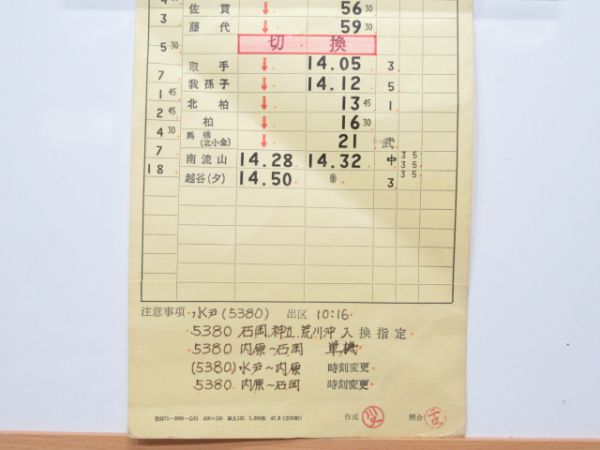 佐貫 ↓ 56 30
藤代 ↓ 59 30
5 30 切・換
取手 ↓ 14.05 3
7 我孫子 ↓ 14.12 5
1 45 北柏 ↓ 13 45 1
2 45 柏 ↓ 16 30
4 30 馬橋(北小金) ↓ 21 武
7 南流山 14.28 14.32 中 3 5 3 5
18 越谷(タ) 14.50 3 3 5
注意事項 水戸(5380) 出区 10:16
5380 石岡.神立.荒川沖 入換指定
5380 内原~石岡 単機
(5380) 水戸~内原 時刻変更
5380 内原~石岡 時刻変更
作成 照合